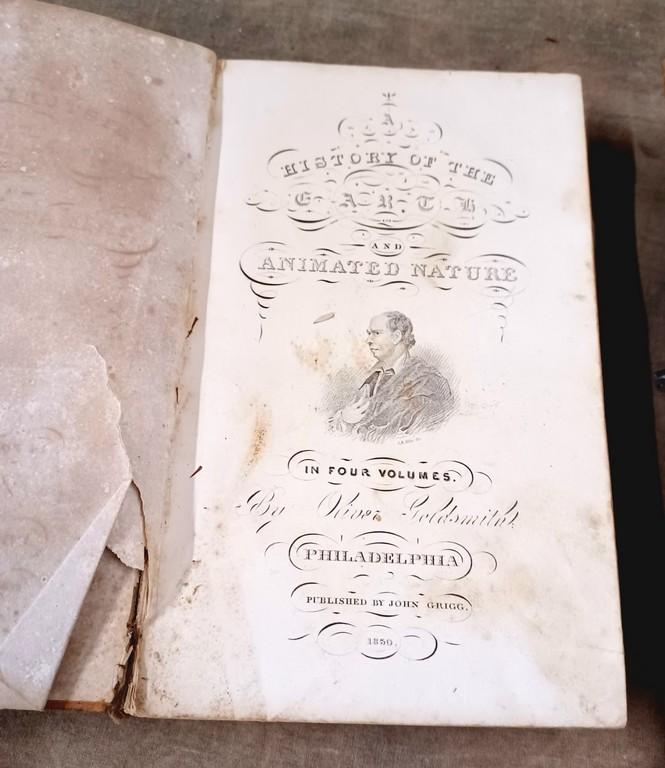 A
HISTORY OF THE
EARTH
AND
ANIMATED NATURE
IN FOUR VOLUMES.
By Oliver Goldsmith.
PHILADELPHIA
PUBLISHED BY JOHN GRIGG.
1830.